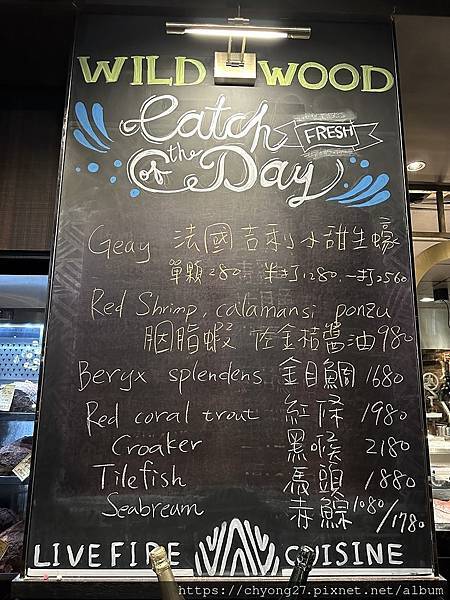 WILD WOOD
Catch FRESH
of the Day
Geay 法國吉利小甜生蠔
單顆280 半打1280 一打2560
Red Shrimp, calamansi ponzu
胭脂蝦 佐金桔醬油 980
Beryx splendens 金目鯛 1680
Red coral trout 紅條 1980
Croaker 黑喉 2180
Tilefish 馬頭 1880
Seabream 赤鯮 1080/1780
LIVE FIRE CUISINE
https://chyong27.pixnet.net/album